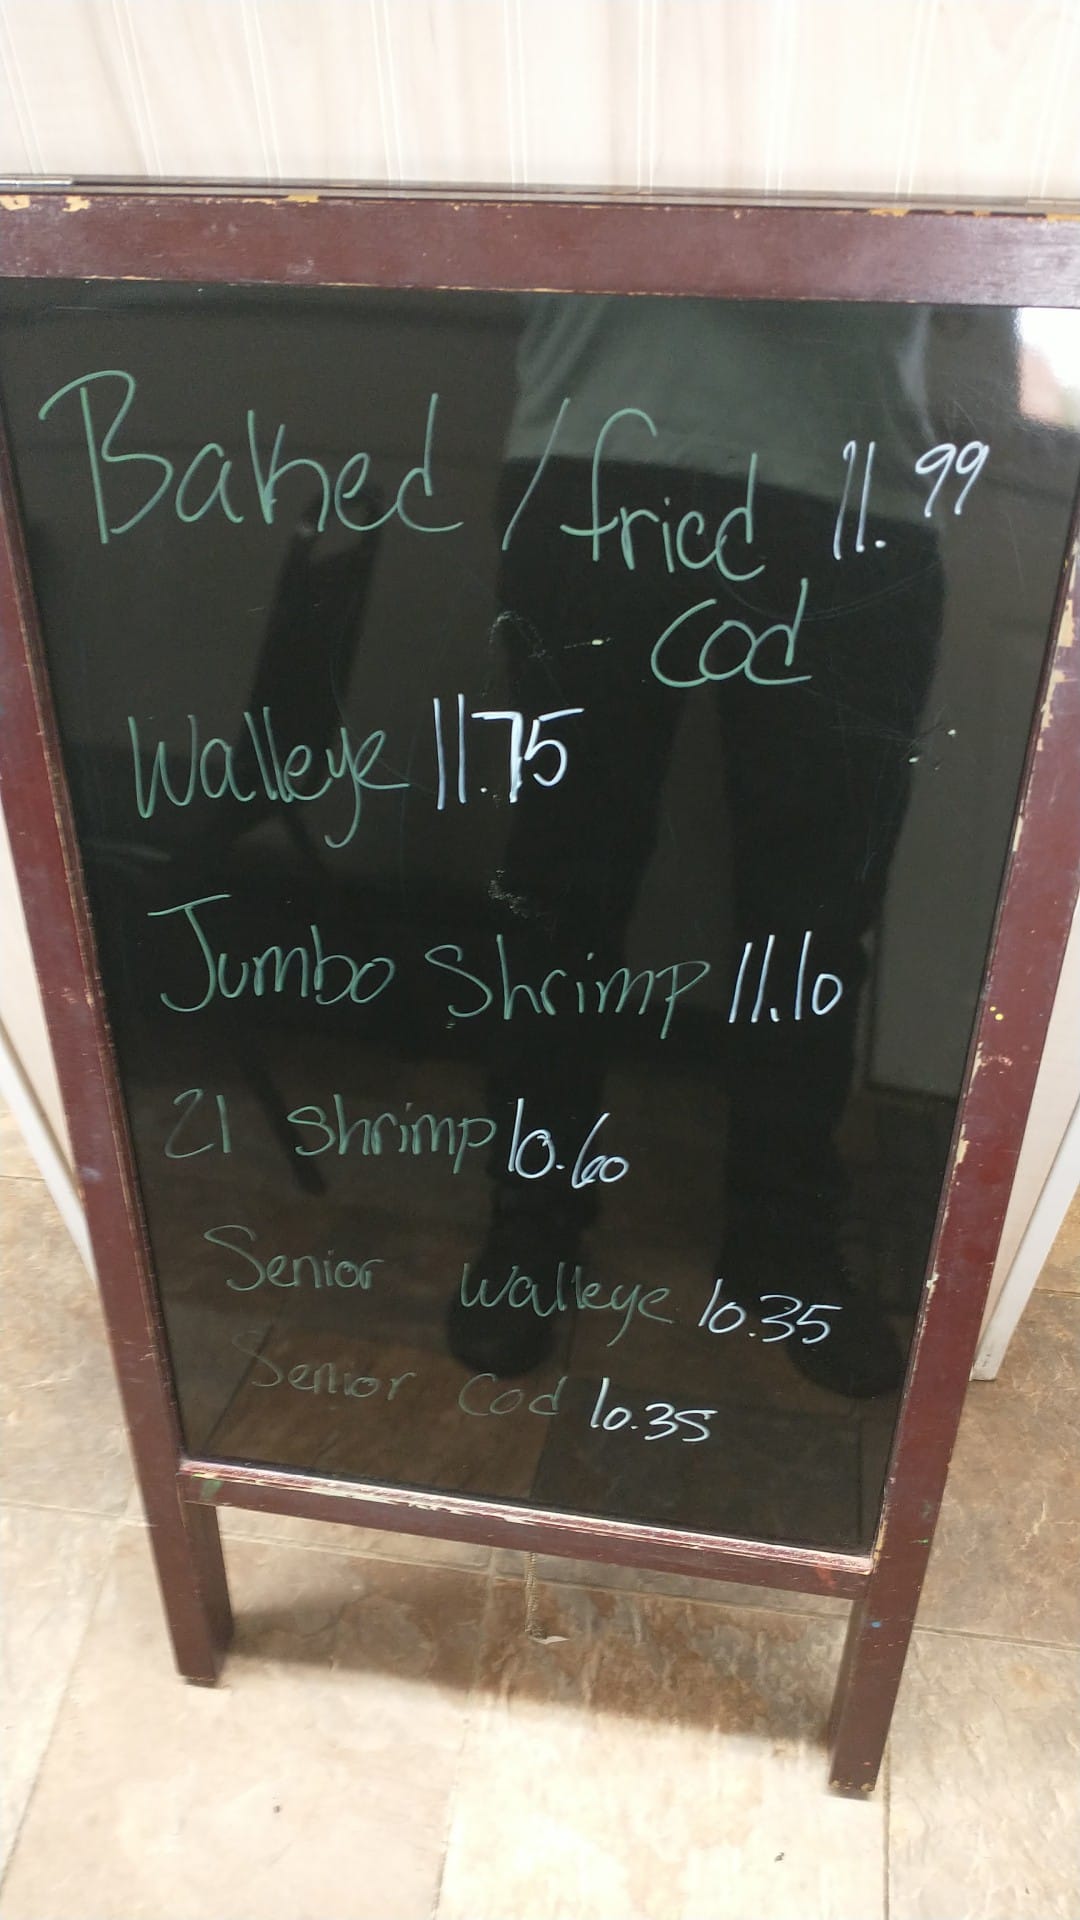 Baked / fried 11.99
cod
Walleye 11.75
Jumbo Shrimp 11.10
21 shrimp 10.60
Senior walleye 10.35
Senior cod 10.35